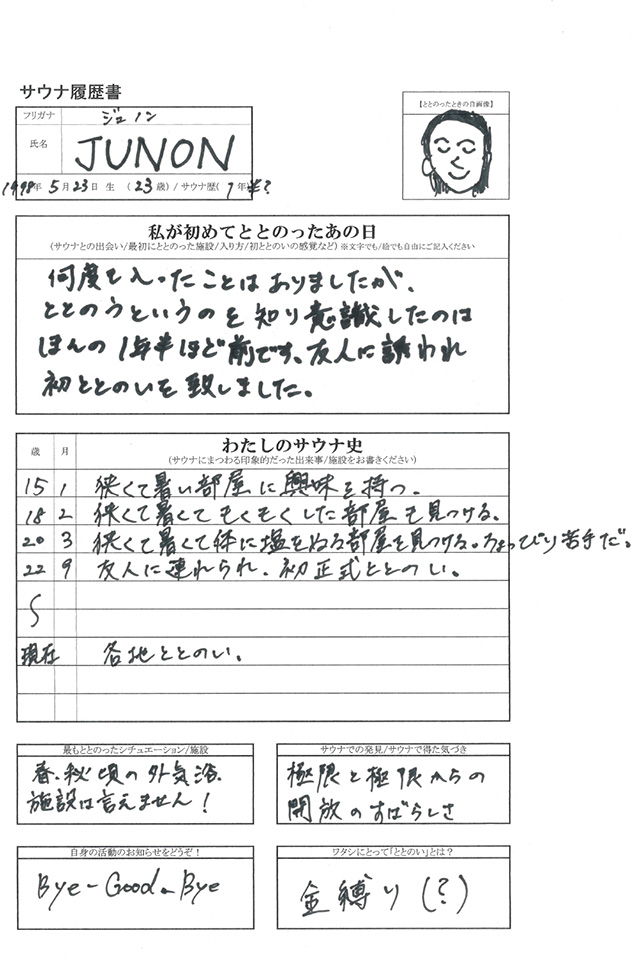 サウナ履歴書
フリガナ ジュノン
氏名 JUNON
1998年 5月23日 生 (23歳) / サウナ歴(1年)半?
【ととのったときの自画像】
私が初めてととのったあの日
(サウナとの出会い/最初にととのった施設/入り方/初ととのいの感覚など) ※文字でも/絵でも自由にご記入ください
何度も入ったことはありましたが、
ととのうというのを知り意識したのは
ほんの1年半ほど前です。友人に誘われ
初ととのいを致しました。
歳 月 わたしのサウナ史
(サウナにまつわる印象的だった出来事/施設をお書きください)
15 1 狭くて暑い部屋に興味を持つ。
18 2 狭くて暑くてもくもくした部屋も見つける。
20 3 狭くて暑くて体に塩をぬる部屋を見つける。ちょっぴり苦手だ。
22 9 友人に連れられ、初正式ととのい。
〜
現在 各地ととのい。
最もととのったシチュエーション/施設
春、秋頃の外気浴。
施設は言えません!
サウナでの発見/サウナで得た気づき
極限と極限からの
開放のすばらしさ
自身の活動のお知らせをどうぞ!
Bye-Good-Bye
ワタシにとって「ととのい」とは?
金縛り(?)